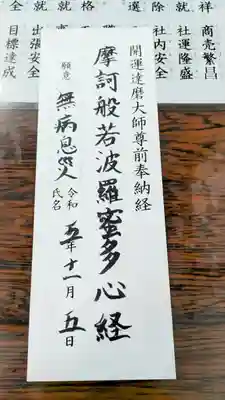 祥 商売繁昌
除 社運隆盛
選 社内安全
格
就 出張安全
全 就 目標達成
開運達磨大師尊前奉納経
摩訶般若波羅蜜多心経
願意 無病息災 令和五年十一月五日
氏名